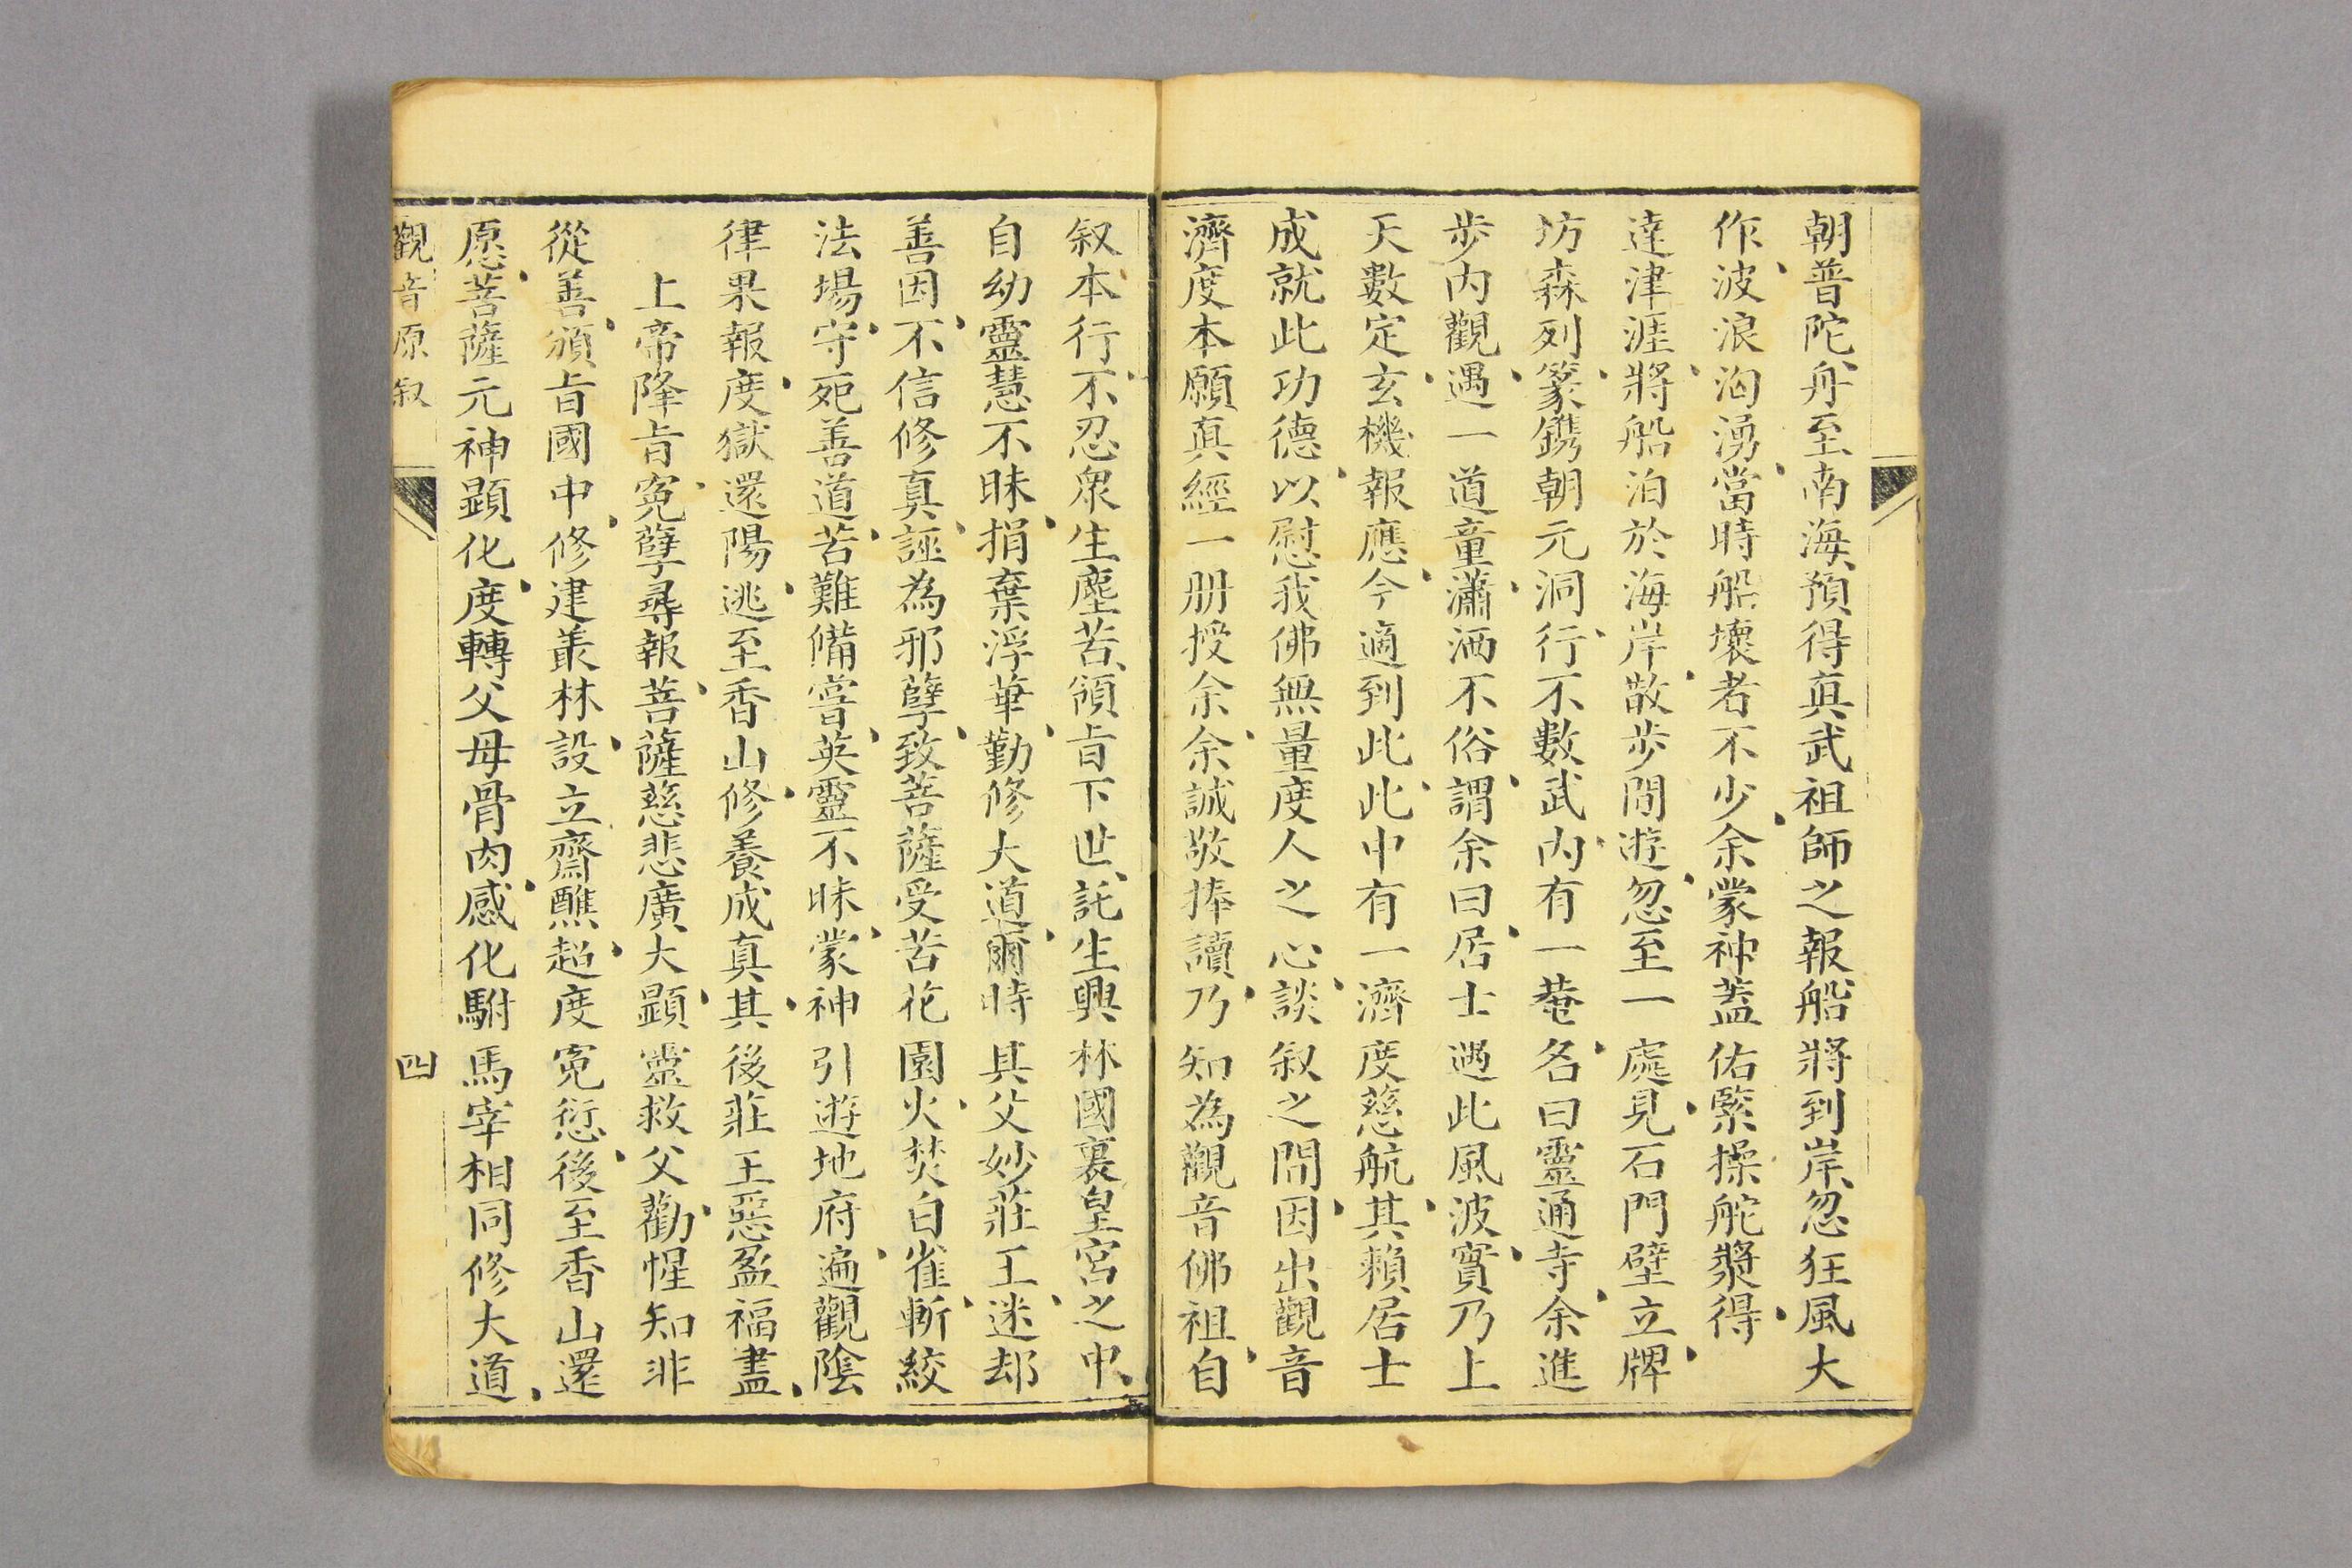 朝普陀、舟至南海、預得真武祖師之報船將到岸、忽狂風大
作、波浪洶湧、當時船壞者不少、余蒙神蓋佑緊操舵槳、得
達津涯、將船泊於海岸、散步閒遊、忽至一處、見石門壁立、牌
坊森列、篆鐫朝元洞、行不數武、內有一菴、名曰靈通寺、余進
步內觀、遇一道童、瀟洒不俗、謂余曰、居士遇此風波、實乃上
天數定、玄機報應、今適到此、此中有一濟度慈航、其賴居士
成就此功德、以慰我佛無量度人之心、談叙之間、因出觀音
濟度本願真經一册授余、余誠敬捧讀、乃知為觀音佛祖、自
叙本行、不忍眾生塵苦、領旨下世、託生興林國裏皇宮之中、
自幼靈慧不昧、捐棄浮華、勤修大道、爾時其父妙莊王、迷却
善因、不信修真、誣為邪孽、致菩薩受苦花園、火焚白雀、斬絞
法場、守死善道、苦難備嘗、英靈不昧、蒙神引遊地府、遍觀陰
律果報、度獄還陽、逃至香山修、養成真、其後莊王惡盈福盡、
上帝降旨、冤孽尋報、菩薩慈悲廣大、顯靈救父、勸惺知非
從善、頒旨國中、修建叢林、設立齋醮、超度冤愆、後至香山還
愿、菩薩元神顯化、度轉父母骨肉、感化駙馬宰相同修大道、
觀音原叙
四